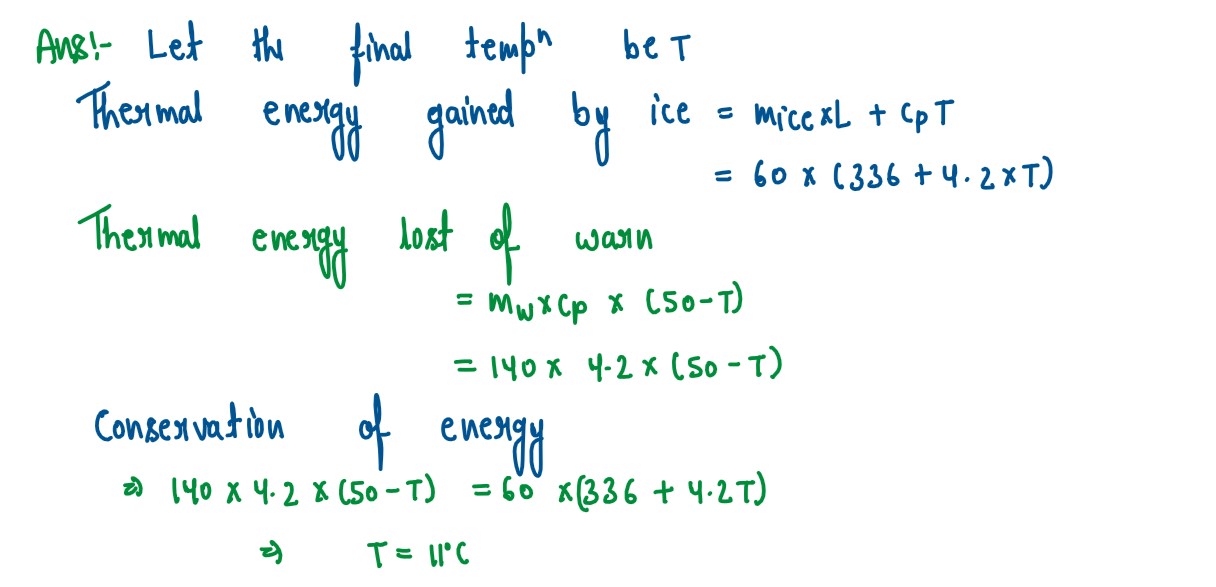 Ans:- Let the final tempⁿ be T
Thermal energy gained by ice = mice×L + CpT
= 60 × (336 + 4.2×T)
Thermal energy lost of warn
= mw×Cp × (50-T)
= 140× 4.2× (50-T)
Conservation of energy
⇒ 140 × 4.2 × (50-T) = 60 ×(336 + 4.2T)
⇒ T = 11°C